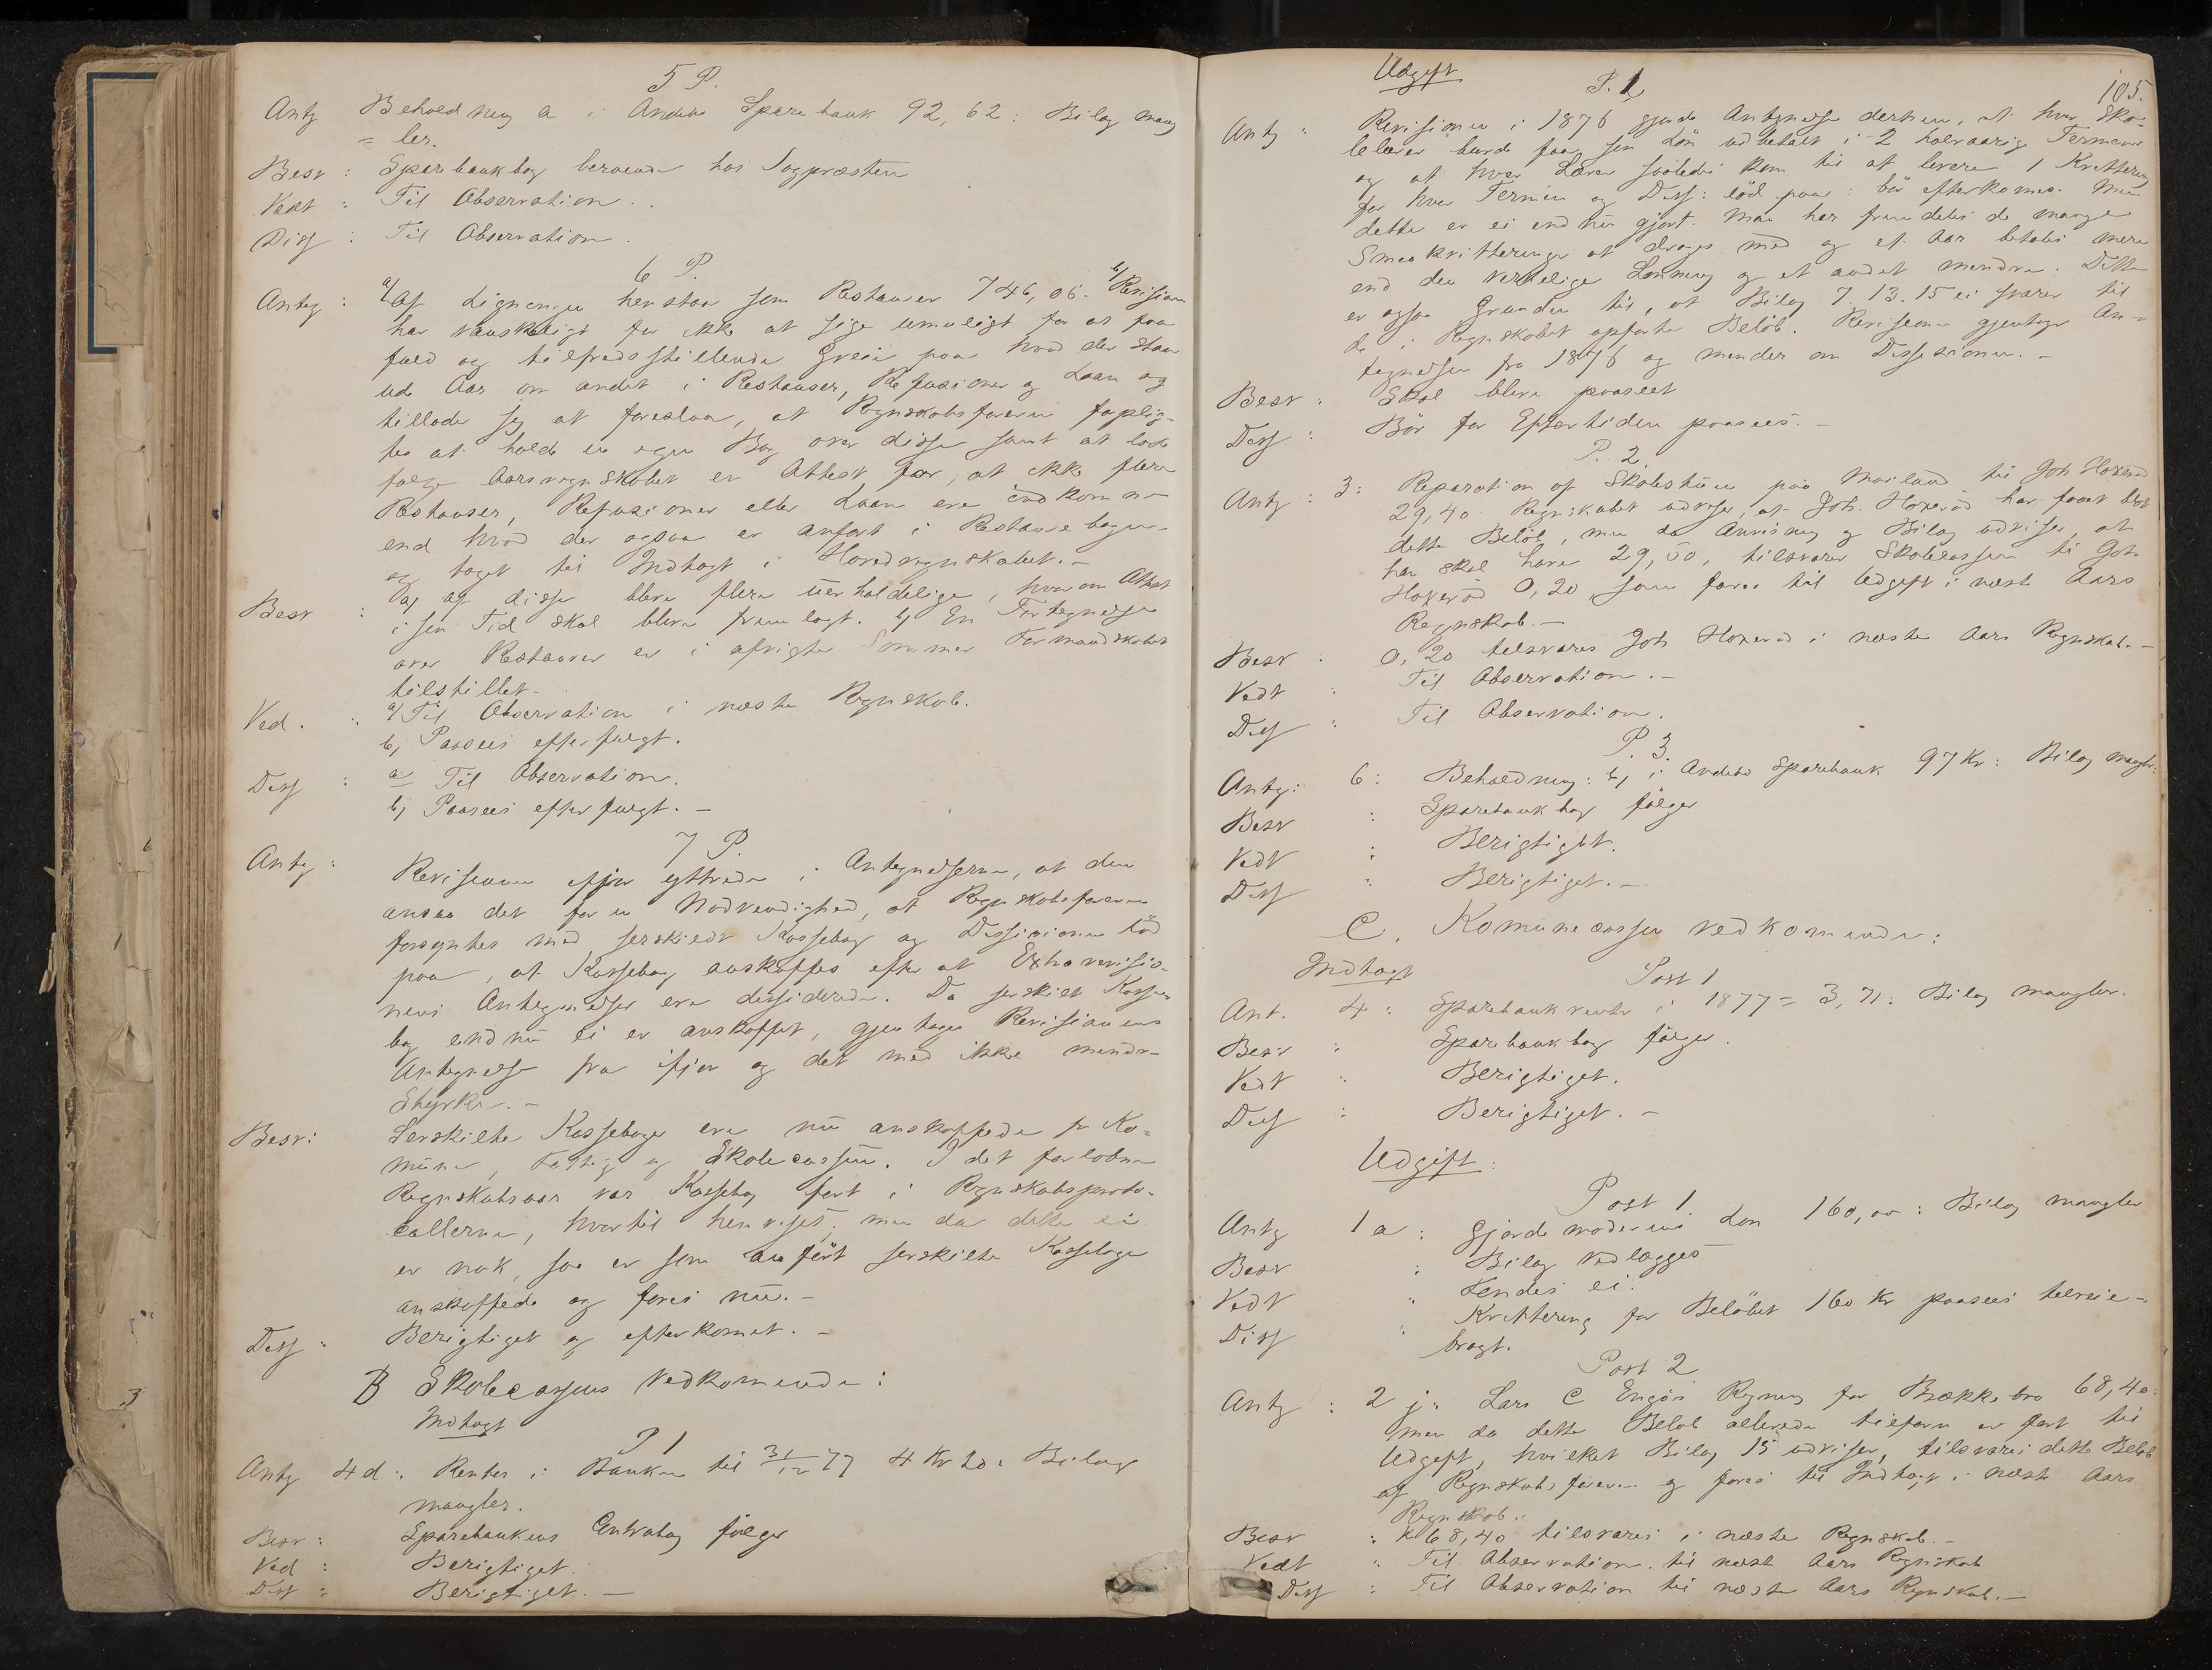 5 P.
Antg Beholdning a i Andebo Sparebank 92,62: Bilag mang
=ler.
Besv: Sparebankbog beroende hos Sogpræsten
Vedt: Til Observation.
Diss: Til Observation.
6 P.
Anteg: a/ Af Ligningen henstaar som Restancer 746,06. b/ Revisionen
har vanskeligt for ikke at sige umuligt for at faa
fuld og tilfredsstillende Greie paa hvad der staar
ude Aar om andet i Restanser, Refusioner og Laan og
tillader sig at foreslaa, at Regnskabsføreren forplig-
tes at holde en egen Bog over disse samt at lade
følge Aarsregnskabet en Attest for, at ikke flere
Restanser, Refusioner eller Laan ere indkomne
end hvad der ogsaa er anført i Restancebogen
og taget til Indtægt i Hovedregnskabet.-
Besv: a/ af disse bleve flere uerholdelige, hvorom Attest
i sin Tid skal blive fremlagt. b/ En Fortegnelse
over Restancer er i afvigte Sommer Formandskabet
tilstillet-
Ved.: a/ Til Observation i næste Regnskab.
b, Paasees efterfulgt.
Dess: a Til Observation.
b, Paasees efterfulgt.-
7 P.
Antg: Revisionen ifjor yttrede i Antegnelserne, at den
ansaa det for en Nødvendighed, at Regnskabsføreren
forsyntes med serskildt Kassebog og Dessisionen lød
paa, at Kassebog anskaffes efter at Extrarevisio-
nens Antegnelser ere dessiderede. Da serskilt Kasse-
bog endnu ei er anskaffet, gjentages Revisionens
Antegnelse fra ifjor og det med ikke mindre
Styrke.-
Besv: Serskilte Kassebøger ere nu anskaffede for Ko-
mune, Fattig og Skolecassen. I det forløbne
Regnskabsaar var Kassebog ført i Regnskabsproto-
collerne, hvortil henvises; men da dette ei
er nok, saa er som anført serskilte Kassebøger
anskaffede og føres nu.-
Dess: Berigtiget og efterkomet.-
B Skolecassens Vedkomende:
Indtægt
P 1
Antg 4 d: Renter i Banken til 31/12 77 4 Kr 20: Bilag
mangler.
Besv: Sparebankens Contrabog følger
Ved: Berigtiget.
Dess: Berigtiget.-
105.
Udgift
P. 1
Antg: Revisionen i 1876 gjorde Antegnelse derhen, at hver Sko-
lelærer burde faa sin Løn udbetalt i 2 halvaarige Terminer
og at hver Lærer saaledes kom til at levere 1 Kvittering
for hver Termin og Dess: lød paa: bør efterkomes. Men
dette er ei endnu gjort. Man har fremdeles de mange
Smaakvitteringer at drages med og et Aar betales mere
end den virkelige Lønning og et andet mindre. Dette
er ogsaa Grunden til, at Bilag 7. 13. 15 ei svarer til
de i Regnskabet opførte Beløb. Revisionen gjentager An-
tegnelsen fra 1876 og minder om Dessisionen.-
Besv: Skal blive paaseet
Dess: Bør for Eftertiden paasees.-
P. 2.
Antg: 3: Reparation af Skolestuen paa Møiland til Joh Hoxerød
29,40. Regnskabet udviser, at Joh. Hoxerød har faaet blot
dette Beløb, men da Anvisning og Bilag udviser, at
han skal have 29,60, tilsvarer Skolecassen til Joh
Hoxerød 0,20, som føres til Udgift i næste Aars
Regnskab.-
Besv: 0,20 tilsvares Joh Hoxerød i næste Aars Regnskab.-
Vedt: Til Observation.-
Dess: Til Observation.
P. 3.
Antg: 6: Beholdning: b, i Andebo Sparebank 97 Kr: Bilag mangler.
Besv: Sparebankbog følger
Vedt: Berigtiget.
Dess: Berigtiget.-
C. Komunecassen vedkomende:
Indtægt
Post 1
Ant. 4: Sparebankrente i 1877 = 3,71: Bilag mangler.
Besv: Sparebankbog følger.
Vedt: Berigtiget.
Dess: Berigtiget.-
Udgift:
Post 1.
Antg 1 a: Gjordemoderens Løn 160,00: Bilag mangler
Besv: Bilag vedlægges
Vedt: Sendes ei.
Diss: Kvittering for Beløbet 160 Kr paasees tilveie-
bragt.
Post 2
Antg: 2 j: Lars C Engøs Regning for Brækkebro 68,40:
men da dette Beløb allerede tilforn er ført til
Udgift, hvilket Bilag 15 udviser, tilsvares dette Beløb
af Regnskabsføreren og føres til Indtægt i næste Aars
Regnskab.
Besv: Kr 68,40 tilsvares i næste Regnskab.-
Vedt: Til Observation til næste Aars Regnskab
Dess: Til Observation til næste Aars Regnskab.-